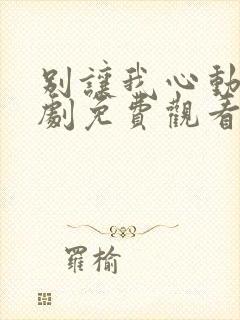 別讓我心動
劇免費觀看
羅榆